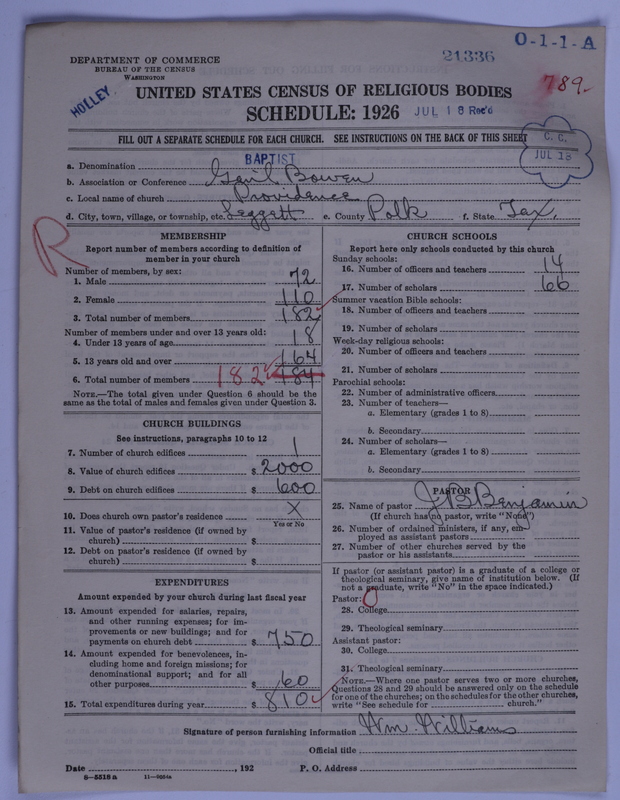 O-1-1-A
21336
789-
DEPARTMENT OF COMMERCE
BUREAU OF THE CENSUS
WASHINGTON
HOLLEY
UNITED STATES CENSUS OF RELIGIOUS BODIES
SCHEDULE: 1926
JUL 18 Rec'd
FILL OUT A SEPARATE SCHEDULE FOR EACH CHURCH. SEE INSTRUCTIONS ON THE BACK OF THIS SHEET
C. C.
JUL 18
a. Denomination BAPTIST
b. Association or Conference Bowen
c. Local name of church Providence
d. City, town, village, or township, etc. Leggett e. County Polk f. State Tex.
R
MEMBERSHIP
Report number of members according to definition of
member in your church
Number of members, by sex:
1. Male 72
2. Female 110
3. Total number of members 182
Number of members under and over 13 years old:
4. Under 13 years of age 18
5. 13 years old and over 164
6. Total number of members 182 184
NOTE.—The total given under Question 6 should be
same as the total of males and females given under Question 3.
CHURCH BUILDINGS
See instructions, paragraphs 10 to 12
7. Number of church edifices 1
8. Value of church edifices $ 2000
9. Debt on church edifices $ 600
10. Does church own pastor's residence X
Yes or No
11. Value of pastor's residence (if owned by
church) $
12. Debt on pastor's residence (if owned by
church) $
EXPENDITURES
Amount expended by your church during last fiscal year
13. Amount expended for salaries, repairs,
and other running expenses; for im-
provements or new buildings; and for
payments on church debt $ 750
14. Amount expended for benevolences, in-
cluding home and foreign missions; for
denominational support; and for all
other purposes $ 60
15. Total expenditures during year $ 810
CHURCH SCHOOLS
Report here only schools conducted by this church
Sunday schools:
16. Number of officers and teachers 14
17. Number of scholars 66
Summer vacation Bible schools:
18. Number of officers and teachers
19. Number of scholars
Week-day religious schools:
20. Number of officers and teachers
21. Number of scholars
Parochial schools:
22. Number of administrative officers
23. Number of teachers—
a. Elementary (grades 1 to 8)
b. Secondary
24. Number of scholars—
a. Elementary (grades 1 to 8)
b. Secondary
PASTOR
25. Name of pastor J B Benjamin
(If church has no pastor, write "None")
26. Number of ordained ministers, if any, em-
ployed as assistant pastors
27. Number of other churches served by the
pastor or his assistants
If pastor (or assistant pastor) is a graduate of a college or
theological seminary, give name of institution below. (If
not a graduate, write "No" in the space indicated.)
Pastor: 0
28. College
29. Theological seminary
Assistant pastor:
30. College
31. Theological seminary
NOTE.—Where one pastor serves two or more churches,
Questions 28 and 29 should be answered only on the schedule
for one of the churches; on the schedules for the other churches,
write "See schedule for church."
Signature of person furnishing information Wm. Williams
Official title
Date , 192 P. O. Address
8-5518 a